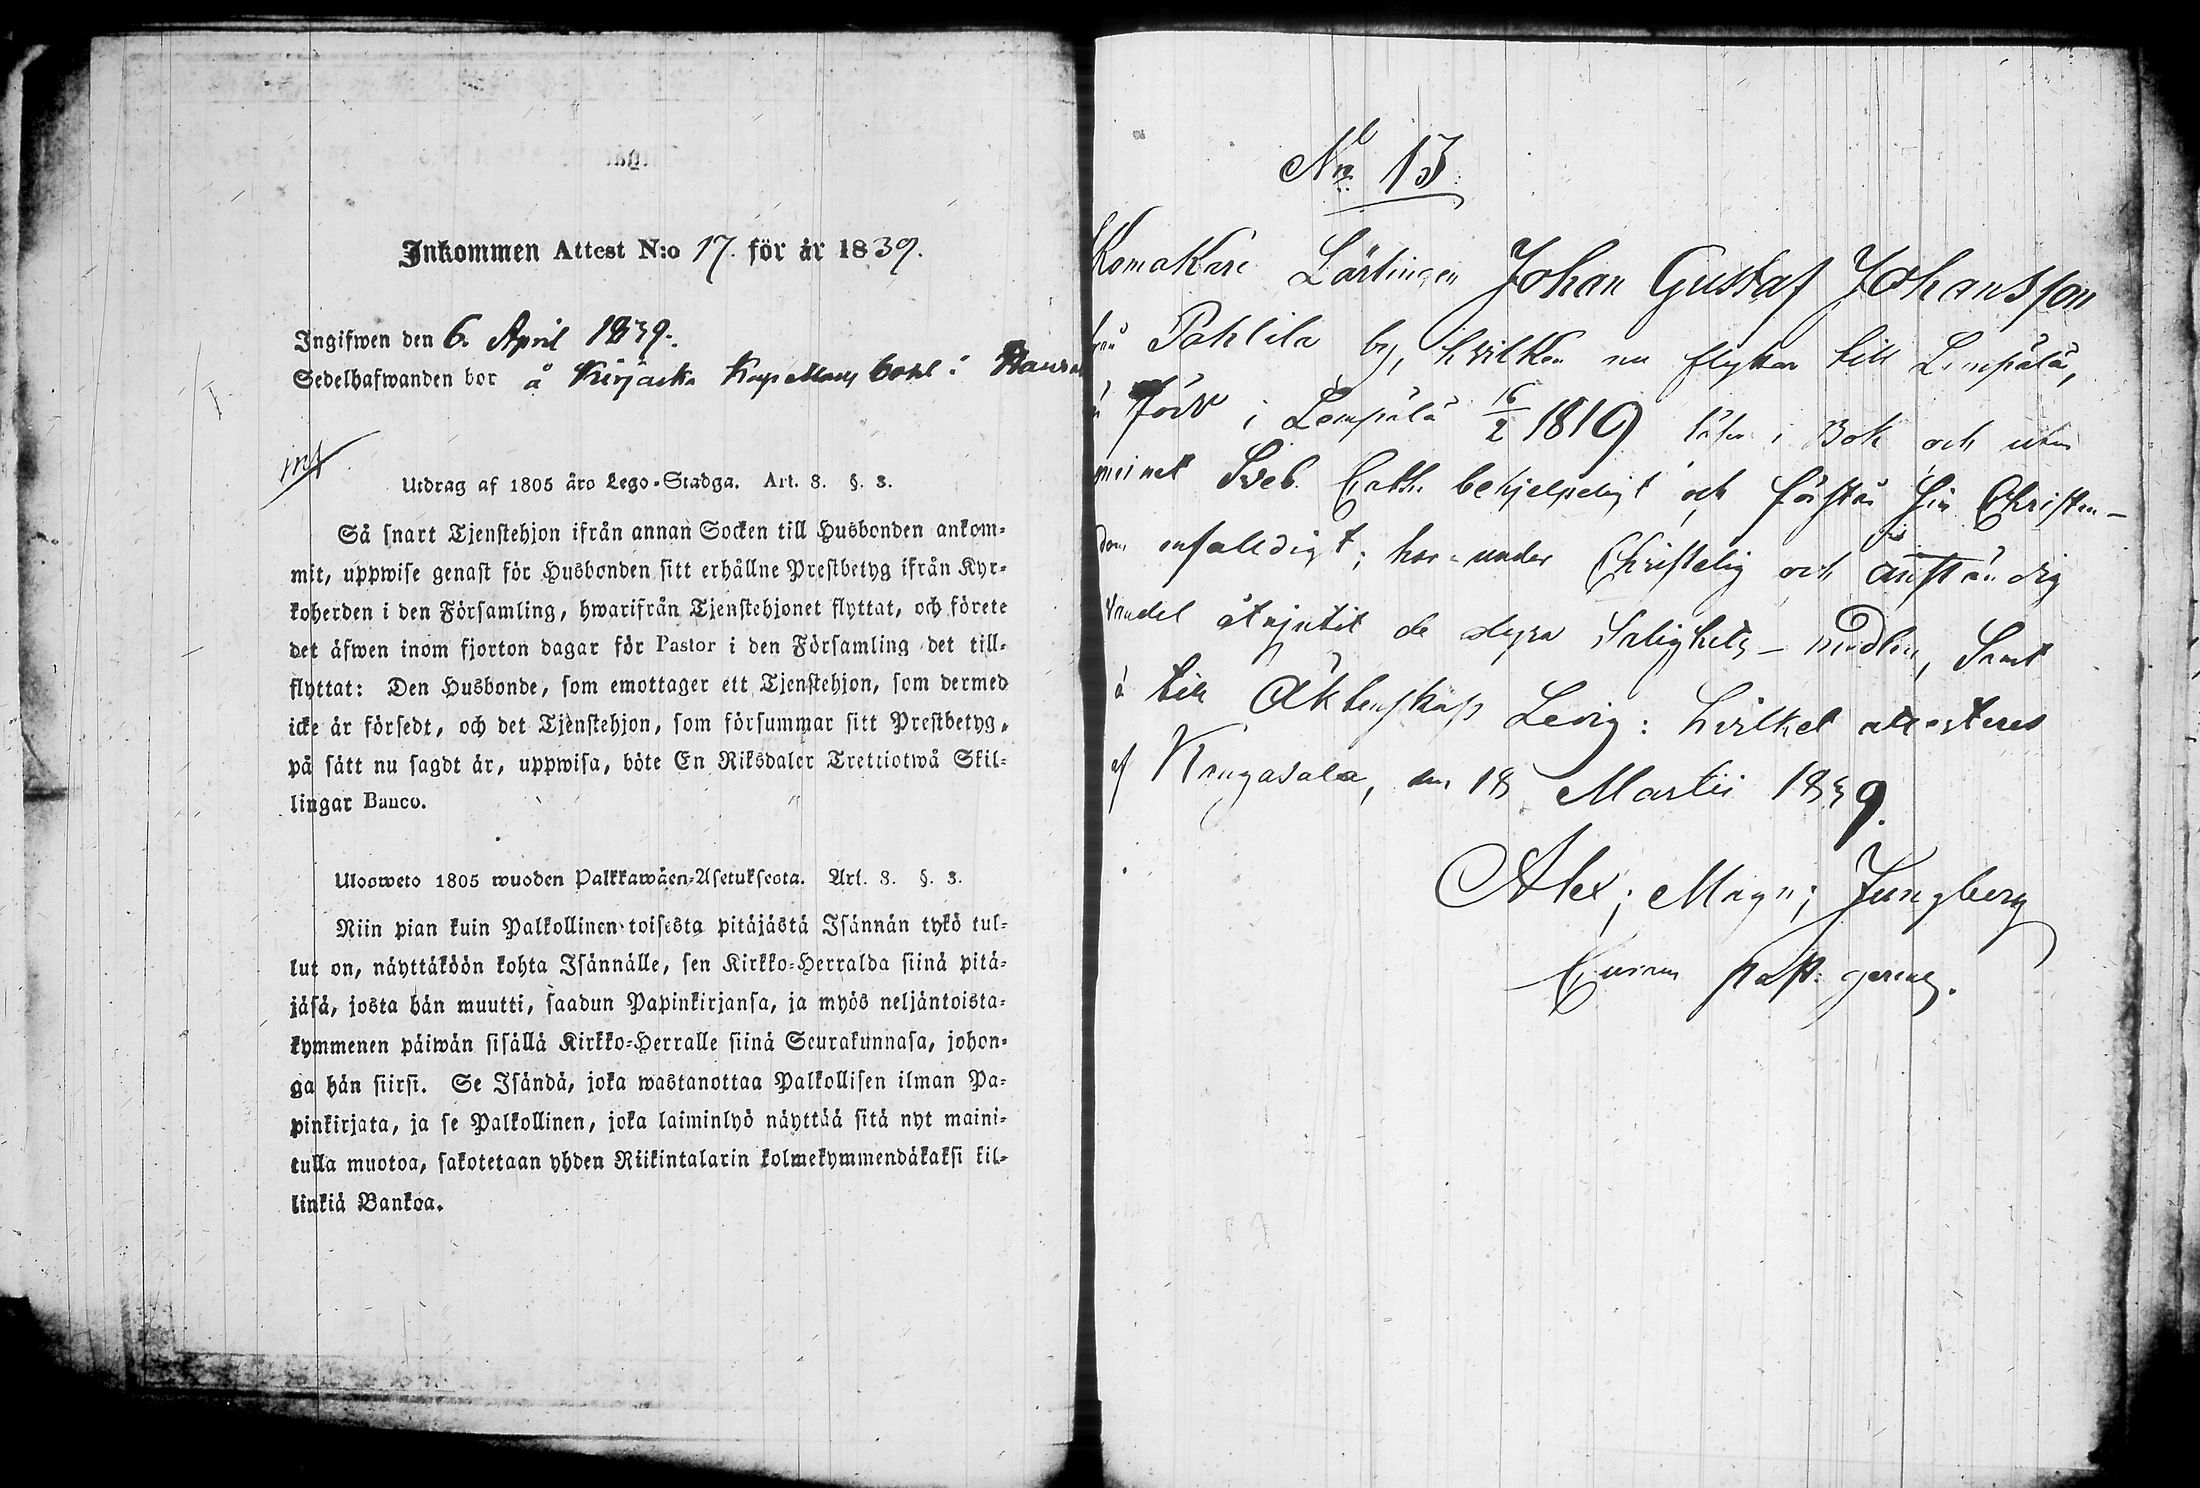 Inkommen Attest N:o 17. för år 1839.
Ingifwen den 6. April 1839.
Sedelhafwanden bor å Kirjaska Kapellans bohl i
Utdrag af 1805 års Lego-Stadga. Art. 8. §. 3.
Så snart Tjenstehjon ifrån annan Socken till Husbonden ankom-
mit, uppwise genast för Husbonden sitt erhållne Prestbetyg ifrån Kyr-
koherden i den Församling, hwarifrån Tjenstehjonet flyttat, och förete
det äfwen inom fjorton dagar för Pastor i den Församling det till-
flyttat: Den Husbonde, som emottager ett Tjenstehjon, som dermed
icke är försedt, och det Tjenstehjon, som försummar sitt Prestbetyg,
på sätt nu sagdt är, uppwisa, böte En Riksdaler Trettiotwå Skil-
lingar Banco.
Ulosweto 1805 wuoden Palkkawäen-Asetuksesta. Art. 8. §. 3.
Niin pian kuin Palkollinen toisesta pitäjästä Isännän tykö tul-
lut on, näyttäköön kohta Isännälle, sen Kirkko-Herralda siinä pitä-
jäsä, josta hän muutti, saadun Papinkirjansa, ja myös neljäntoista-
kymmenen päiwän sisällä Kirkko-Herralle siinä Seurakunnasa, johon-
ga hän siirsi. Se Isändä, joka wastanottaa Palkollisen ilman Pa-
pinkirjata, ja se Palkollinen, joka laiminlyö näyttää sitä nyt maini-
tulla muotoa, sakotetaan yhden Riikintalarin kolmekymmendäkaksi kil-
linkiä Bankoa.
No 13
Lärlingen Johan Gustaf Johansson
Pahlila by, hvilken nu flyttar till Lempälä,
född i Lempälä 16/2 1819 läser i Bok och utan
Sveb. Cath. behjelpeligt och förstår sin Christen-
dom enfalldigt; har under Christelig och anständig
vandel åtnjutit de dyra Salighets-medlen, Samt
till Äktenskap Ledig: hvilket attesteras
af Kangasala, den 18 Martii 1839.
Alex; Magn; Jungberg
past.